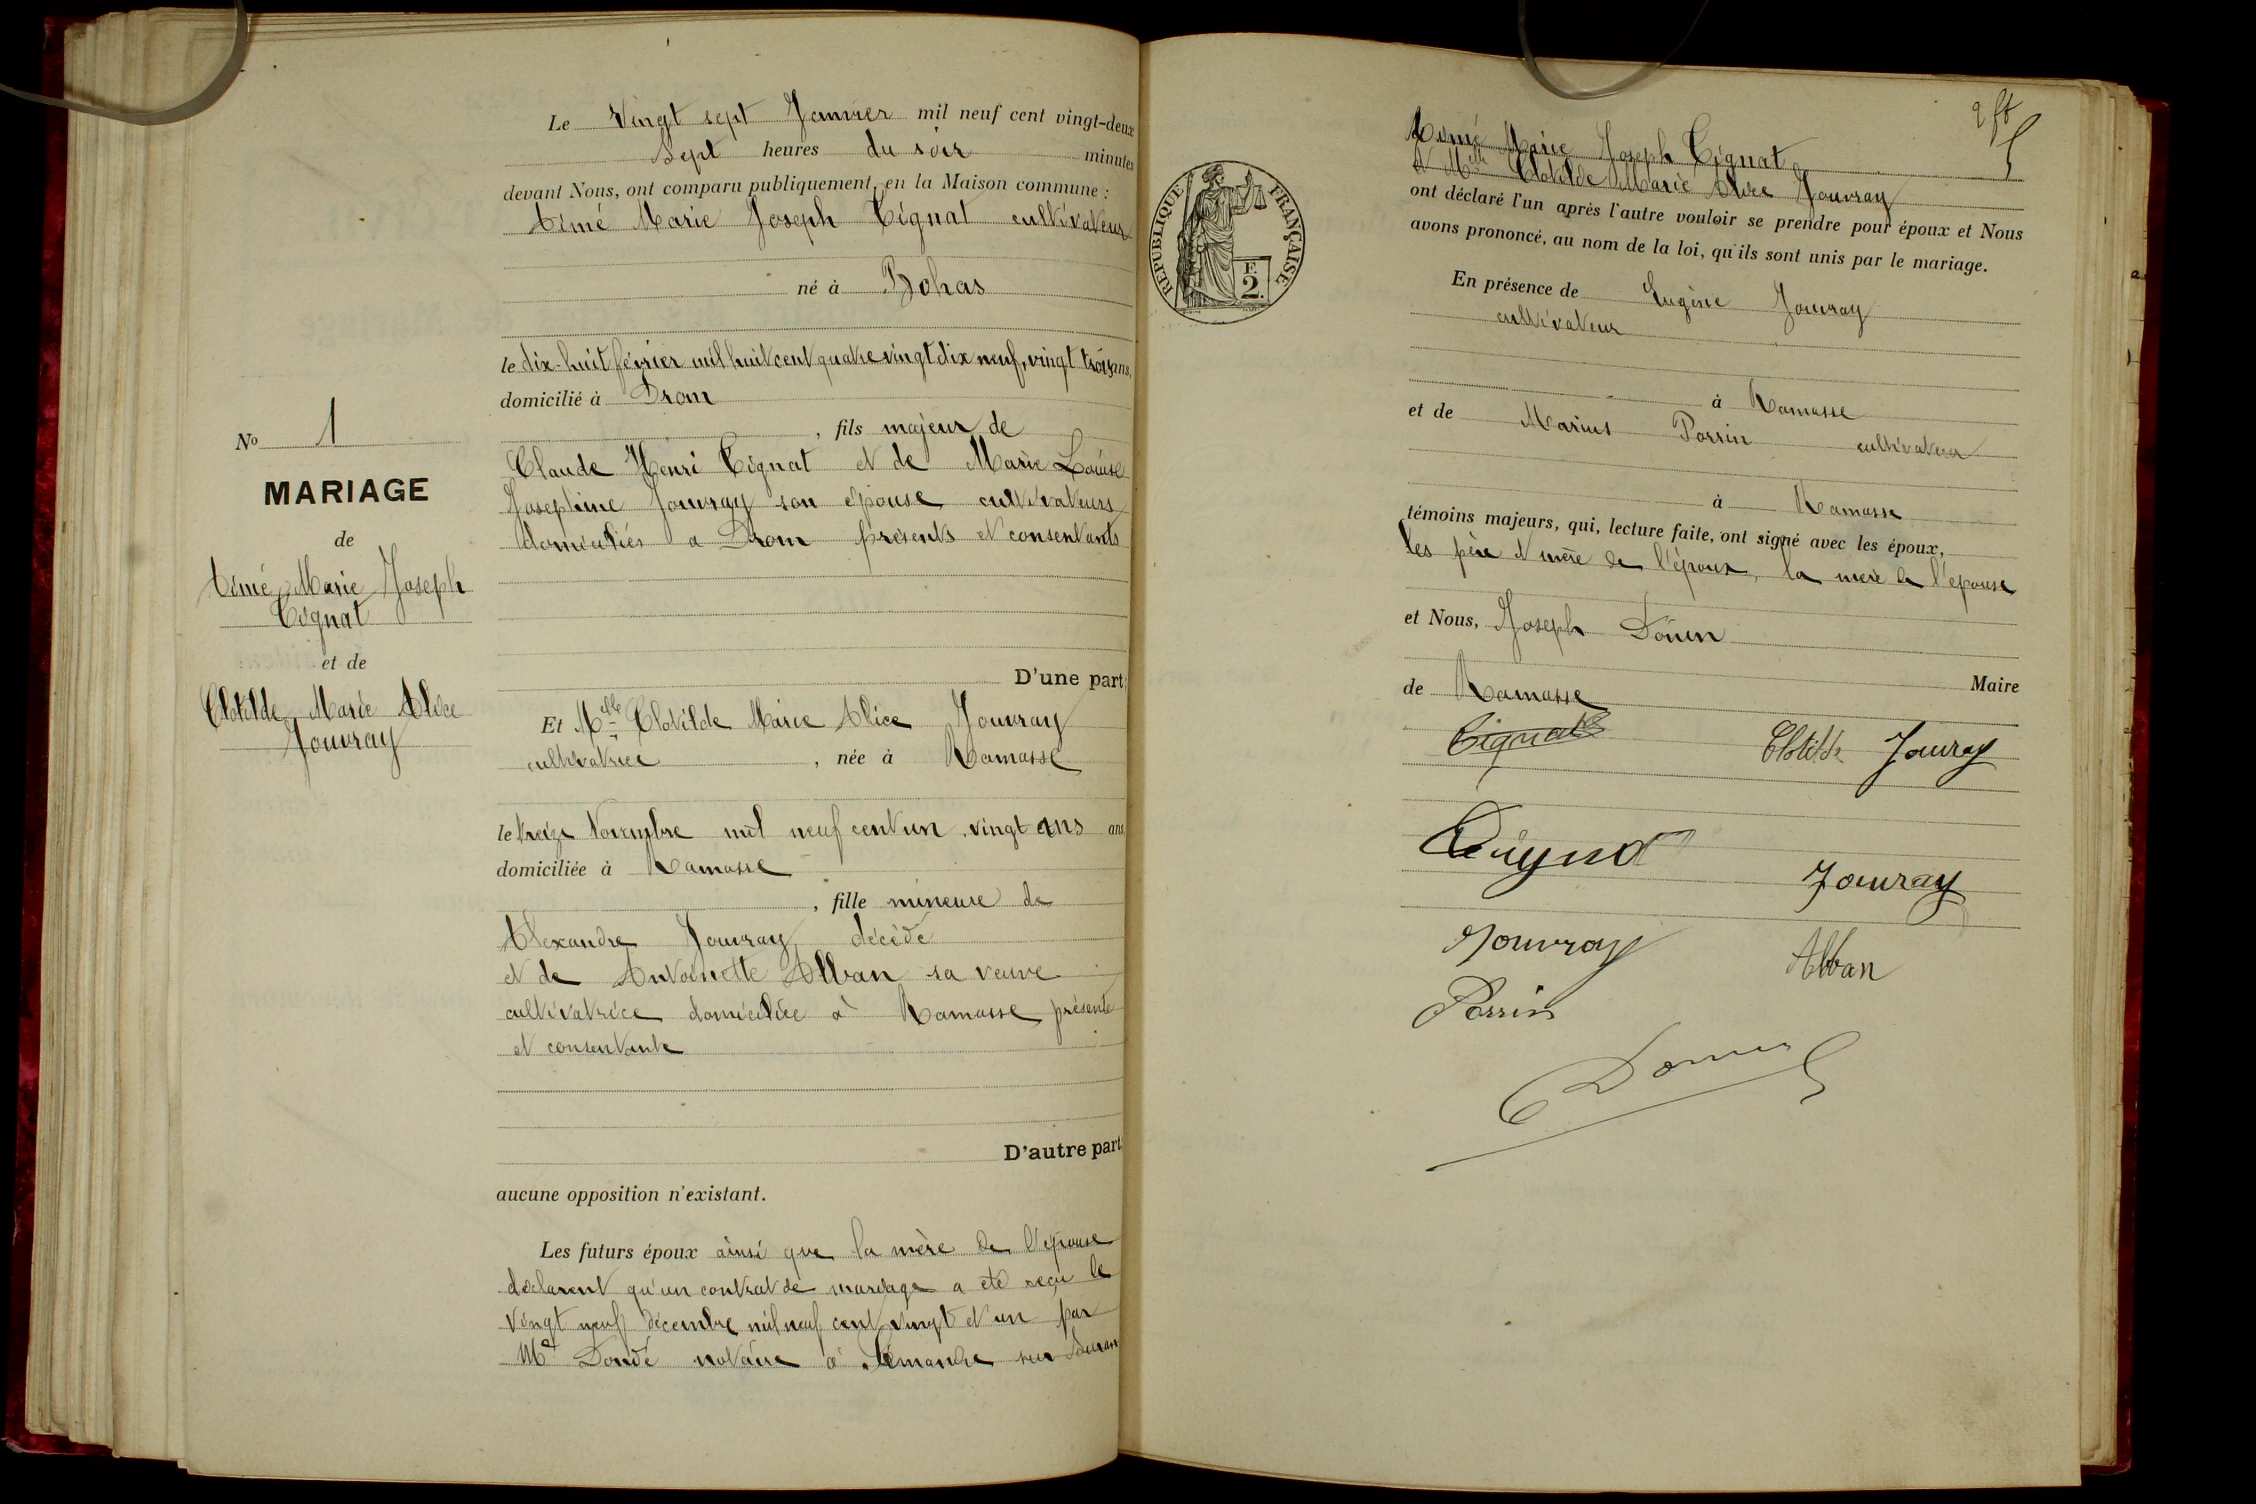 Le Vingt sept Janvier mil neuf cent vingt-deux
Sept heures du soir minutes
devant Nous, ont comparu publiquement, en la Maison commune :
Aimé Marie Joseph Cignat cultivateur
né à Bohas
le dix-huit février mil huit cent quatre vingt dix neuf, vingt trois ans,
domicilié à Drom
, fils majeur de
Claude Henri Cignat et de Marie Louise
Josephine Jouvray son épouse cultivateurs
domiciliés a Drom présents et consentants
D'une part;
No 1
MARIAGE
de
Aimé Marie Joseph
Cignat
et de
Clotilde Marie Alice
Jouvray
Et Melle Clotilde Marie Alice Jouvray
cultivatrice , née à Ramasse
le treize Novembre mil neuf cent un, vingt ans ans
domiciliée à Ramasse
, fille mineure de
Alexandre Jouvray, décédé
et de Antoinette Alban sa veuve
cultivatrice domiciliée à Ramasse présente
et consentante
D'autre part
aucune opposition n'existant.
Les futurs époux ainsi que la mère de l'épouse
déclarent qu'un contrat de mariage a été reçu le
vingt neuf décembre mil neuf cent vingt et un par
Me Dondé notaire à Simandre sur Suran
Aimé Marie Joseph Cignat
et Melle Clotilde Marie Alice Jouvray
ont déclaré l'un après l'autre vouloir se prendre pour époux et Nous
avons prononcé, au nom de la loi, qu'ils sont unis par le mariage.
En présence de Eugène Jouvray
cultivateur
à Ramasse
et de Marius Perrin cultivateur
à Ramasse
témoins majeurs, qui, lecture faite, ont signé avec les époux,
les père et mère de l'époux, la mère de l'épouse
et Nous, Joseph Donin
Maire
de Ramasse
Cignat Clotilde Jouvray
Cuignat
Jouvray
Jouvray
Alban
Perrin
Donin
RÉPUBLIQUE FRANÇAISE
F.
2.